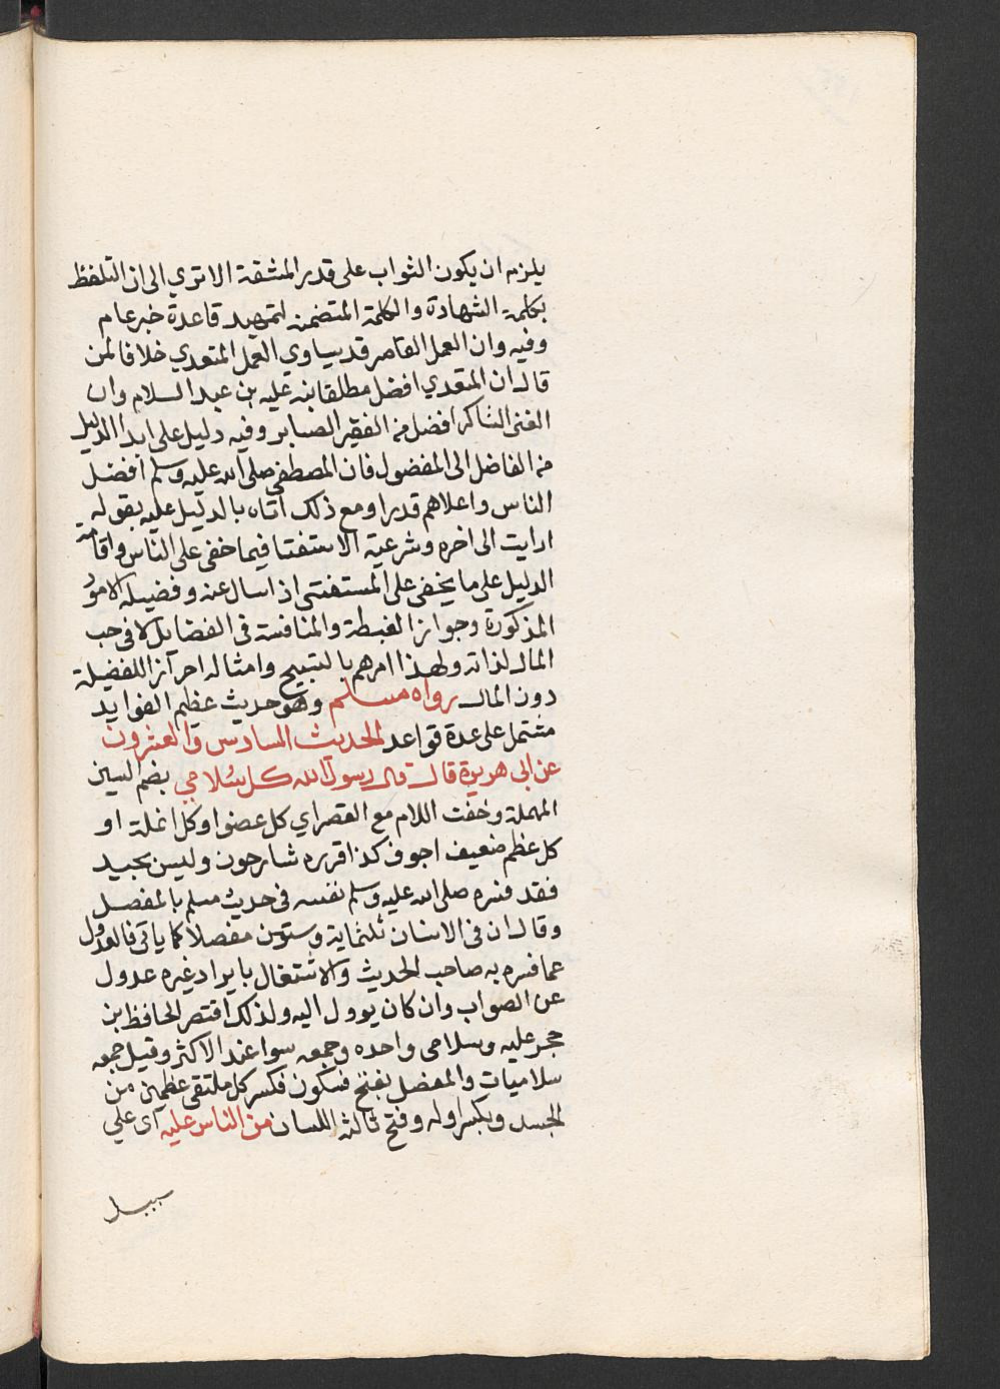 يلزم ان يكون الثواب على قدر المشقة الا تري الى ان التلفظ
بكلمة الشهادة والكلمة المتضمنة لتمهيد قاعدة خير عام
وفيه وان العمل القاصر قد يساوي العمل المتعدي خلافا لمن
قال ان المتعدي افضل مطلقا نبه عليه بن عبد السلام وان
الغنى الشاكر افضل من الفقير الصابر وفيه دليل على ابدا الدليل
من الفاضل الى المفضول فان المصطفى صلى الله عليه وسلم افضل
الناس واعلاهم قدرا ومع ذلك اتاه بالدليل عليه بقوله
ارايت الى اخره وشرعية الاستفتا فيما خفى على الناس واقامة
الدليل على ما يخفى على المستفتى اذا سال عنه وفضيلة الامور
المذكورة وجواز الغبطة والمنافسة فى الفضائل لا فى حب
المال لذاته ولهذا امرهم بالتسبيح وامثاله احرازا للفضيلة
دون المال رواه مسلم وهو حديث عظيم الفوايد
مشتمل على عدة قواعد الحديث السادس والعشرون
عن ابى هريرة قال قال رسول الله كل سلامي بضم السين
المهملة وخفت اللام مع القصر اي كل عضو او كل انملة او
كل عظم ضعيف اجوف كذا قرره شارحون وليس بجيد
فقد فسره صلى الله عليه وسلم نفسه فى حديث مسلم بالمفصل
وقال ان فى الانسان ثلثماية وستون مفصلا كما ياتى فالعدول
عما فسره به صاحب الحديث والاشتغال بايراد غيره عدول
عن الصواب وان كان يوول اليه ولذلك اقتصر الحافظ بن
حجر عليه وسلامى واحده وجمعه سوا عند الاكثر وقيل جمعه
سلاميات والمفصل بفتح فسكون فكسر كل ملتقى عظمين من
الجسد وبكسر اوله وفتح ثالثه اللسان من الناس عليه اى علي
سبيل